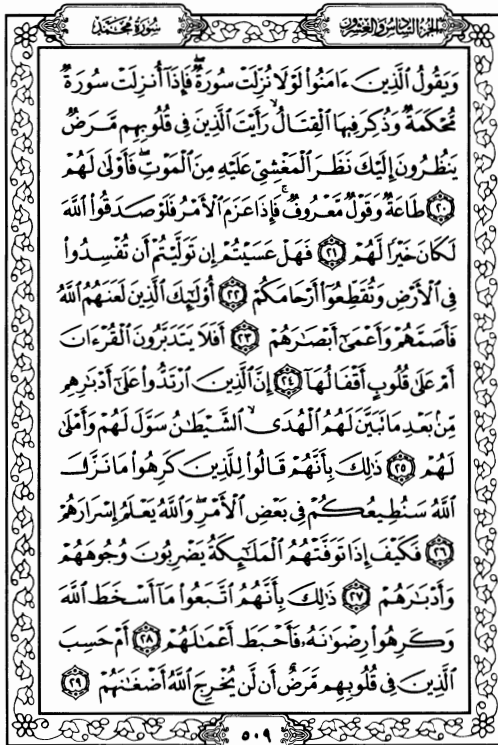 سُورَةُ مُحَمَّد
الجزء السادس والعشرون
وَيَقُولُ ٱلَّذِينَ ءَامَنُوا۟ لَوْلَا نُزِّلَتْ سُورَةٌۖ فَإِذَآ أُنزِلَتْ سُورَةٌ
مُّحْكَمَةٌ وَذُكِرَ فِيهَا ٱلْقِتَالُۙ رَأَيْتَ ٱلَّذِينَ فِى قُلُوبِهِم مَّرَضٌ
يَنظُرُونَ إِلَيْكَ نَظَرَ ٱلْمَغْشِىِّ عَلَيْهِ مِنَ ٱلْمَوْتِۖ فَأَوْلَىٰ لَهُمْ
٢٠ طَاعَةٌ وَقَوْلٌ مَّعْرُوفٌۚ فَإِذَا عَزَمَ ٱلْأَمْرُ فَلَوْ صَدَقُوا۟ ٱللَّهَ
لَكَانَ خَيْرًا لَّهُمْ ٢١ فَهَلْ عَسَيْتُمْ إِن تَوَلَّيْتُمْ أَن تُفْسِدُوا۟
فِى ٱلْأَرْضِ وَتُقَطِّعُوٓا۟ أَرْحَامَكُمْ ٢٢ أُو۟لَٰٓئِكَ ٱلَّذِينَ لَعَنَهُمُ ٱللَّهُ
فَأَصَمَّهُمْ وَأَعْمَىٰٓ أَبْصَٰرَهُمْ ٢٣ أَفَلَا يَتَدَبَّرُونَ ٱلْقُرْءَانَ
أَمْ عَلَىٰ قُلُوبٍ أَقْفَالُهَآ ٢٤ إِنَّ ٱلَّذِينَ ٱرْتَدُّوا۟ عَلَىٰٓ أَدْبَٰرِهِم
مِّنۢ بَعْدِ مَا تَبَيَّنَ لَهُمُ ٱلْهُدَىۙ ٱلشَّيْطَٰنُ سَوَّلَ لَهُمْ وَأَمْلَىٰ
لَهُمْ ٢٥ ذَٰلِكَ بِأَنَّهُمْ قَالُوا۟ لِلَّذِينَ كَرِهُوا۟ مَا نَزَّلَ
ٱللَّهُ سَنُطِيعُكُمْ فِى بَعْضِ ٱلْأَمْرِۖ وَٱللَّهُ يَعْلَمُ إِسْرَارَهُمْ
٢٦ فَكَيْفَ إِذَا تَوَفَّتْهُمُ ٱلْمَلَٰٓئِكَةُ يَضْرِبُونَ وُجُوهَهُمْ
وَأَدْبَٰرَهُمْ ٢٧ ذَٰلِكَ بِأَنَّهُمُ ٱتَّبَعُوا۟ مَآ أَسْخَطَ ٱللَّهَ
وَكَرِهُوا۟ رِضْوَٰنَهُۥ فَأَحْبَطَ أَعْمَٰلَهُمْ ٢٨ أَمْ حَسِبَ
ٱلَّذِينَ فِى قُلُوبِهِم مَّرَضٌ أَن لَّن يُخْرِجَ ٱللَّهُ أَضْغَٰنَهُمْ ٢٩
٥٠٩